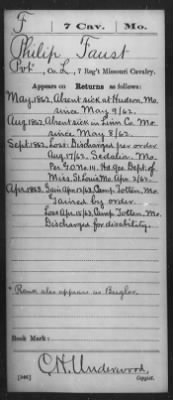 F 7 Cav. Mo.
Philip Faust
Pvt, Co. L, 7 Reg't Missouri Cavalry.
Appears on Returns as follows:
May, 1862, Absent sick at Hudson, Mo.
since May 9/62.
Aug. 1862, Absent sick in Linn Co. Mo.
since May 8/62.
Sept. 1862, Loss: Discharged per order
Aug. 17/62. Sedalia, Mo.
Per G.O. No. 14. Hd. qrs Dept. of
Miss. St. Louis Mo. Apr. 2/62.
Apr. 1863, Gain Apr. 13/63, Camp Totten, Mo.
Gained by order.
Loss Apr. 15/63, Camp Totten, Mo.
Discharged for disability.
* Rank also appears as Bugler.
Book Mark:
C. H. Underwood,
(546) Copyist.